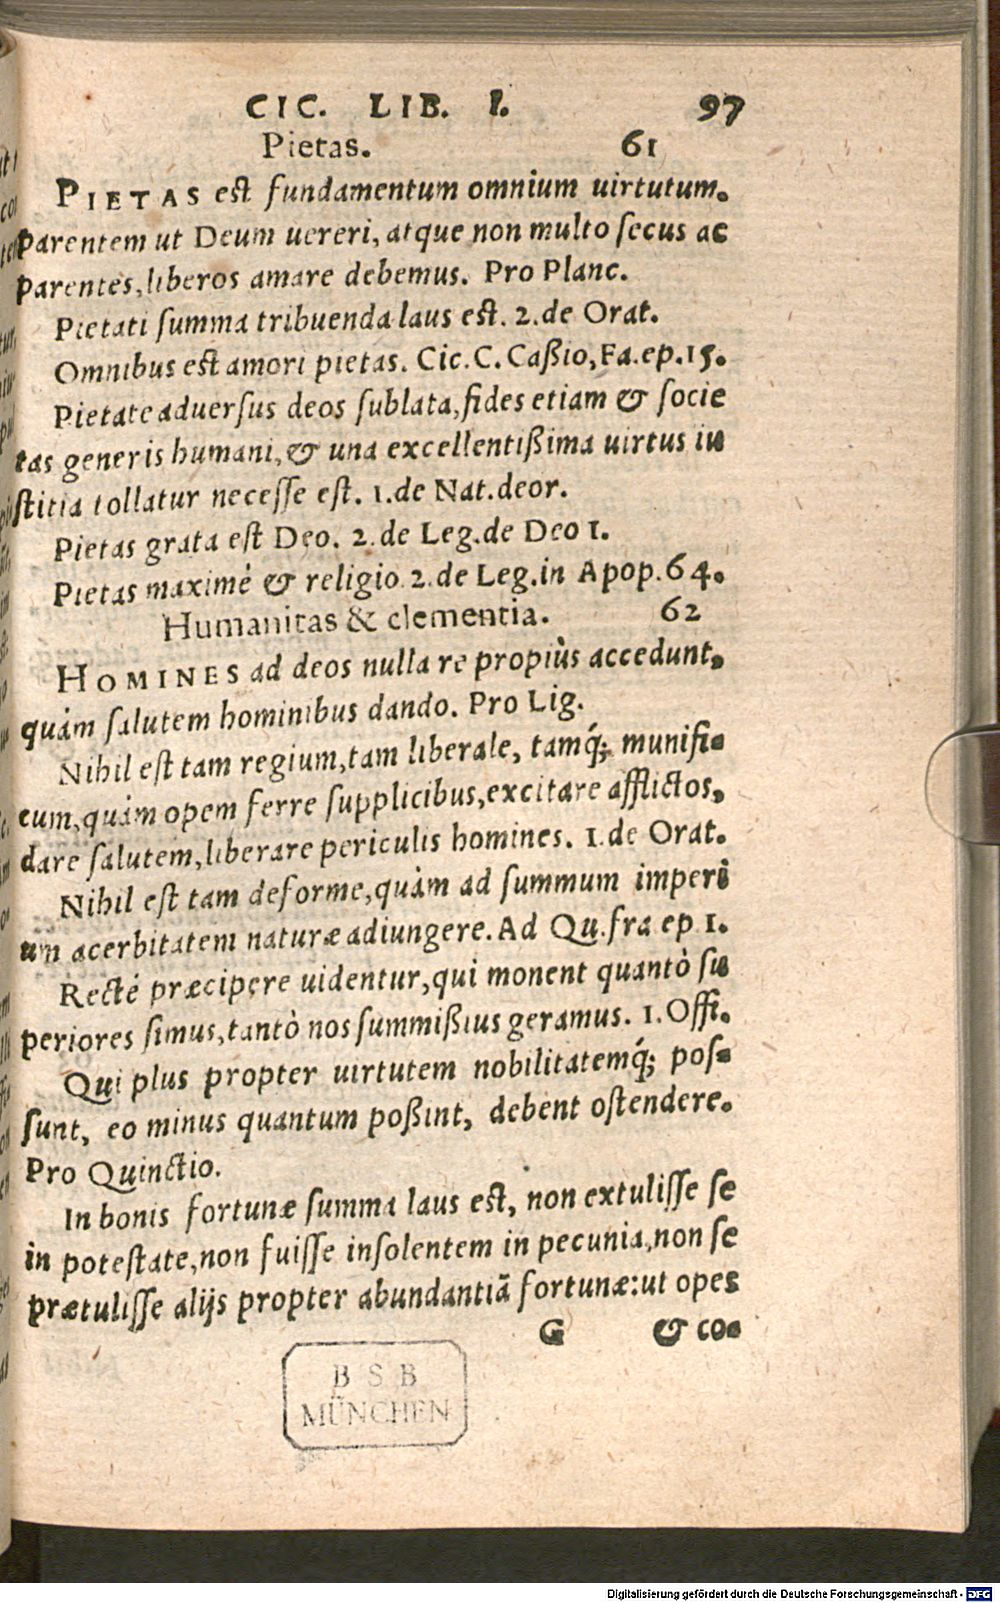 CIC. LIB. I. 97
Pietas. 61
PIETAS est fundamentum omnium uirtutum.
Parentem ut Deum uereri, atque non multo secus ac
parentes, liberos amare debemus. Pro Planc.
Pietati summa tribuenda laus est. 2. de Orat.
Omnibus est amori pietas. Cic. C. Caßio, Fa. ep. 15.
Pietate aduersus deos sublata, fides etiam & socie
tas generis humani, & una excellentißima uirtus iu
stitia tollatur necesse est. 1. de Nat. deor.
Pietas grata est Deo. 2. de Leg. de Deo 1.
Pietas maximè & religio 2. de Leg. in Apop. 64.
Humanitas & clementia. 62
HOMINES ad deos nulla re propiùs accedunt,
quàm salutem hominibus dando. Pro Lig.
Nihil est tam regium, tam liberale, tamq́; munifi-
cum, quàm opem ferre supplicibus, excitare afflictos,
dare salutem, liberare periculis homines. 1. de Orat.
Nihil est tam deforme, quàm ad summum imperi
um acerbitatem naturæ adiungere. Ad Qu. fra ep 1.
Rectè præcipere uidentur, qui monent quantò su
periores simus, tantò nos summißius geramus. 1. Offi.
Qui plus propter uirtutem nobilitatemq́; pos-
sunt, eo minus quantum poßint, debent ostendere.
Pro Quinctio.
In bonis fortunæ summa laus est, non extulisse se
in potestate, non fuisse insolentem in pecunia, non se
prætulisse alijs propter abundantiã fortunæ: ut opes
G & co-
BSB
MÜNCHEN
Digitalisierung gefördert durch die Deutsche Forschungsgemeinschaft - DFG